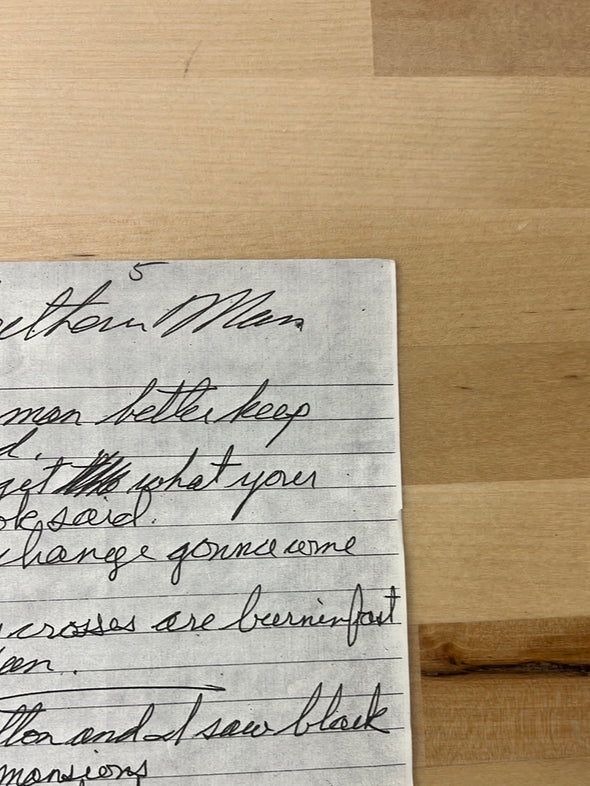 5
uthern Man
man better keep
d.
get what your
ok said.
change gonna come
crosses are burnin fast
een.
tton and I saw black
mansions